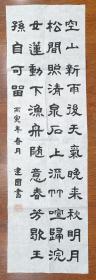 空山新雨後天氣晚來秋明月
松間照清泉石上流竹喧歸浣
女蓮動下漁舟隨意春芳歇王
孫自可留
寅年春月
建國書